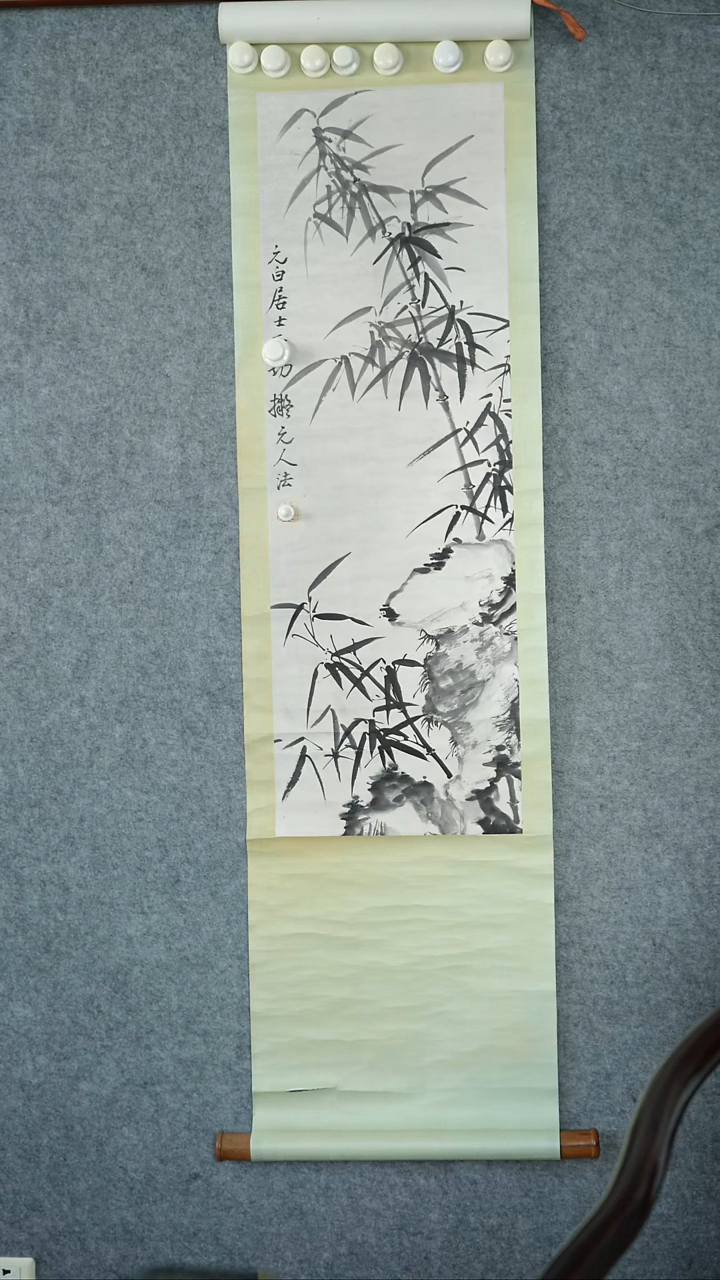 元白居士功擬元人法